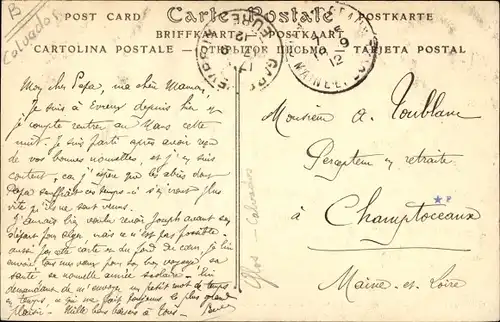 B
Calvados
POST CARD Carte Postale POSTKARTE
BRIEFKAART — POSTKAART
CARTOLINA POSTALE — ОТКРЫТОЕ ПИСЬМО — TARJETA POSTAL
GARE
EURE
MAINE-ET-LOIRE
9
12
Mon cher Papa, ma chère Maman,
Je suis à Evreux depuis hier
je compte rentrer au Mans cette
nuit. Je suis parti après avoir reçu
de vos bonnes nouvelles, et j'en suis
content, car j'espère que les abcès dont
Papa souffrait ces temps-ci s'en vont plus
vite qu'ils ne sont venus.
J'aurais bien voulu revoir Joseph avant son
départ pour Alger mais ce n'est pas possible.
aussi par cette carte du fond du cœur, je lui
envoie tous mes vœux pour son bon voyage, sa
santé sa nouvelle année scolaire. Lui
demandant de m'envoyer un petit mot de temps
en temps, ce qui me fait toujours le plus grand
plaisir. Mille bons baisers à tous.
Monsieur A. Toublanc
Percepteur en retraite
à Champtoceaux
Maine-et-Loire
Glos - Calvados